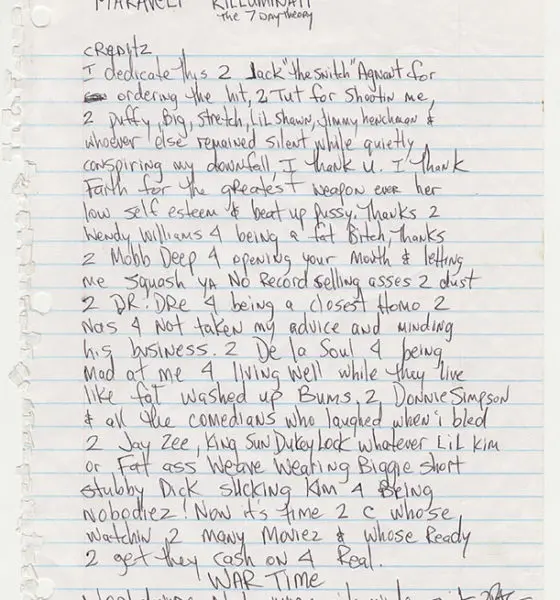 MAKAVELI KILLUMINATI
The 7 Day Theory
CREDITZ
I dedicate this 2 Jack "the snitch" Agnant for
ordering the hit, 2 Tut for Shootin me,
2 Puffy, Big, Stretch, Lil Shawn, Jimmy henchman &
whoever else remained silent while quietly
conspiring my downfall, I thank U. I thank
Faith for the greatest weapon ever her
low self esteem & beat up pussy. Thanks 2
Wendy Williams 4 being a fat Bitch, Thanks
2 Mobb Deep 4 opening your Mouth & letting
me Squash ya No Record Selling asses 2 dust
2 DR. DRe 4 being a closest Homo 2
Nas 4 Not taken my advice and minding
his business. 2 De la Soul 4 being
Mad at me 4 living well while they live
like fat washed up Bums, 2 Donnie Simpson
& all the comedians who laughed when i bled
2 Jay Zee, King Sun Dukey Lock whatever Lil Kim
or Fat ass Weave Wearing Biggie short
stubby Dick sucking Kim 4 Being
Nobodiez! Now it's time 2 c whose
watchin 2 many Moviez & whose Ready
2 get they cash on 4 Real.
WAR TIME